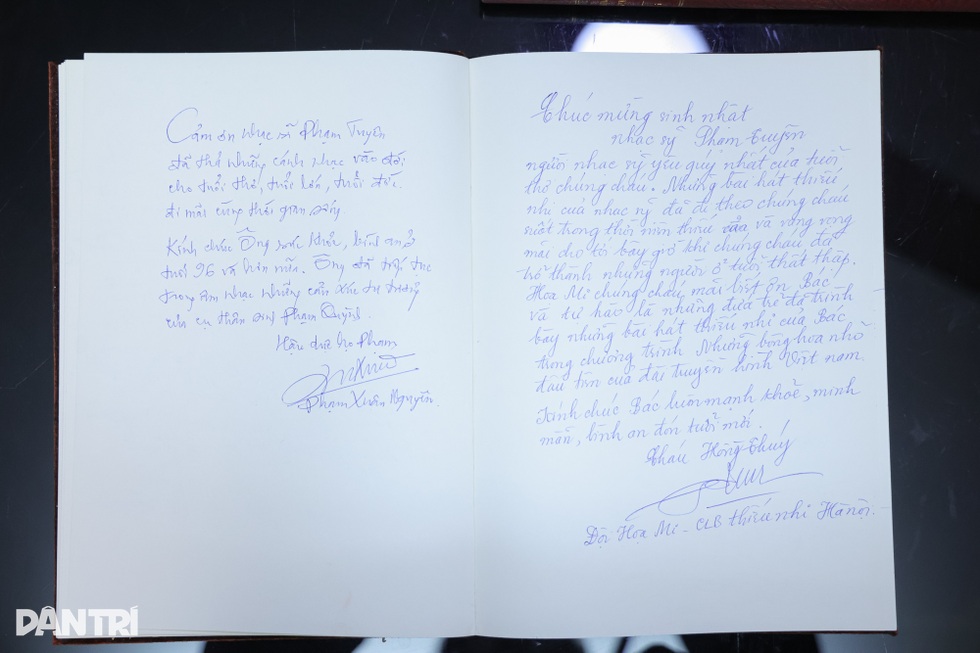 Cảm ơn nhạc sĩ Phạm Tuyên
đã thả những cánh nhạc vào đời
cho tuổi thơ, tuổi lớn, tuổi đời
đi mãi cùng thời gian
Kính chúc Ông sức khỏe, bình an ở
tuổi 96 và hơn nữa. Ông đã tiếp tục
trong âm nhạc những cảm xúc tư tưởng
của cụ thân sinh Phạm Quỳnh.
Hậu duệ họ Phạm
Phạm Xuân Nguyên.
Chúc mừng sinh nhật
nhạc sỹ Phạm Tuyên
người nhạc sỹ yêu quý nhất của tuổi
thơ chúng cháu. Những bài hát thiếu
nhi của nhạc sỹ đã đi theo chúng cháu
suốt trong thời niên thiếu và vang vọng
mãi cho tới bây giờ khi chúng cháu đã
trở thành những người ở tuổi thất thập.
Họa Mi chúng cháu mãi biết ơn Bác
và tự hào là những đứa trẻ đã trình
bày những bài hát thiếu nhi của Bác
trong chương trình Những bông hoa nhỏ
đầu tiên của đài truyền hình Việt Nam.
Kính chúc Bác luôn mạnh khoẻ, minh
mẫn, bình an đón tuổi mới.
Cháu Hồng Thúy
Đội Họa Mi - CLB thiếu nhi Hà Nội.
DÂN TRÍ